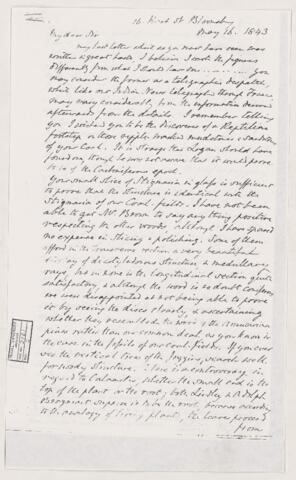 16 Hart St Bloomsbury
May 16. 1843
My dear Sir
My last letter which as you must have seen was
written in great haste, I believe I wrote the
differently from what I should have done You
may consider the former as a telegraphic despatch
which like our Indian News telegraph, though true
may vary considerably from the information derived
afterwards from the details. I remember telling
you I tested to the discovery of a Reptilian
footstep on those ripple marked sandstones, & shales
of your Coal. It is strange that Logan should have
found one, though he was not aware that it would prove
to be of the Carboniferous epoch.
Your small slice of Stigmaria on glass is sufficient
to prove that the structure is identical with the
Stigmaria of our Coal fields. I have not been
able to get Mr Brown to say any thing positive
respecting the other woods, although I have spared
no expence in slicing & polishing. Some of them
afford in the transverse section a very beautiful
display of dicotyledonous structure & medullary
rays, but in none is the longitudinal section quite
satisfactory, & although the wood is no doubt conifrous
we were disappointed at not being able to prove
it by seeing the discs clearly, & ascertaining
whether they resemble those of the Araucarian
pines rather than our common deal as you know is
the case in the fossils of our coal fields. If you ever
see the vertical trees of the Joggins, search well
for woody structure. There is a controversy in
regard to Calamites, whether the small end is the
top of the plant or the root; both Lindley & Adolph.
Brongniart suppose it to be the root, because according
to the analogy of living plants, the leaves proceed
from